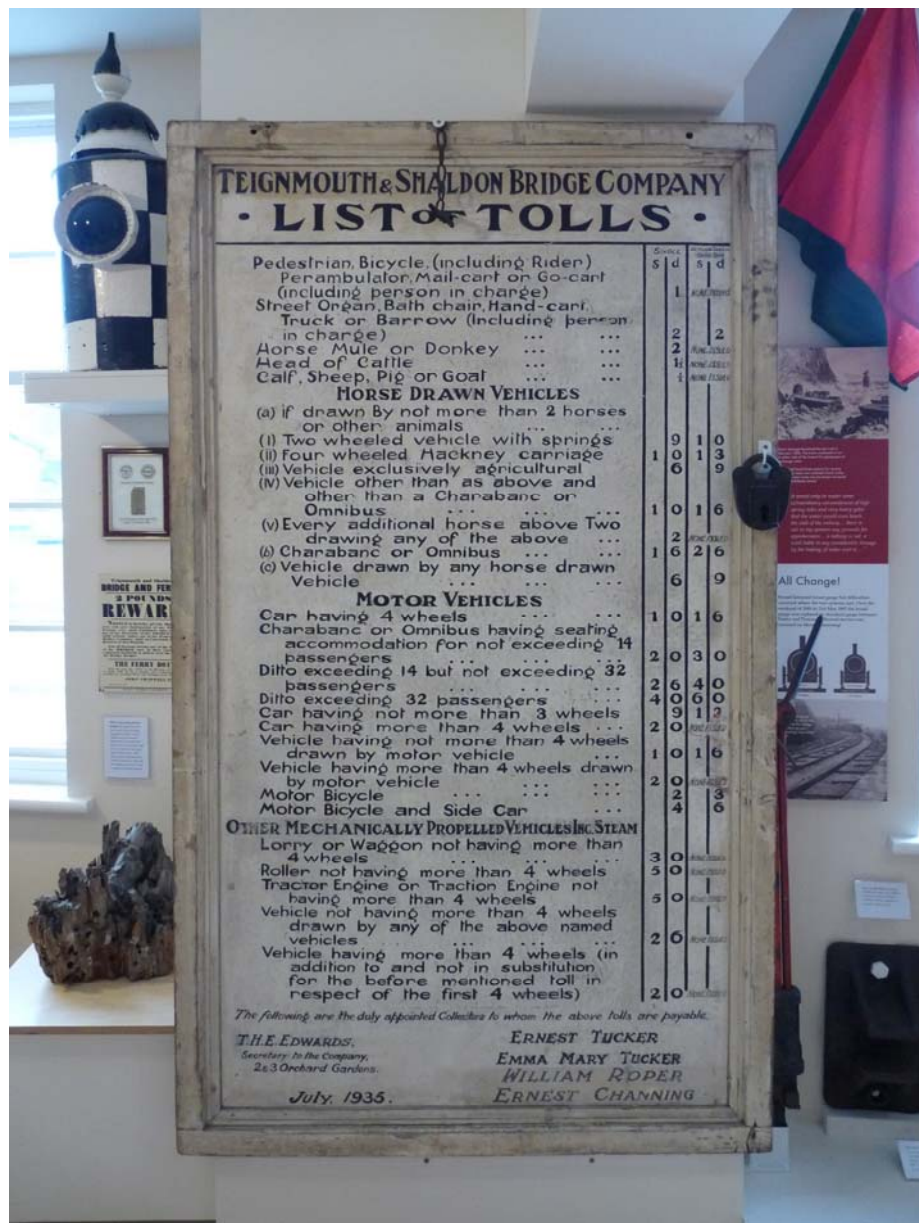 TEIGNMOUTH & SHALDON BRIDGE COMPANY
• LIST OF TOLLS •
SINGLE
s d s d
Pedestrian, Bicycle, (including Rider)
Perambulator, Mail-cart or Go-cart
(including person in charge) 1 NONE ISSUED
Street Organ, Bath chair, Hand-cart,
Truck or Barrow (Including person
in charge) ... ... 2 2
Horse Mule or Donkey ... ... 2 NONE ISSUED
Head of Cattle ... ... 1½ NONE ISSUED
Calf, Sheep, Pig or Goat ... ... ½ NONE ISSUED
HORSE DRAWN VEHICLES
(a) if drawn By not more than 2 horses
or other animals ... ...
(I) Two wheeled vehicle with springs 9 1 0
(II) Four wheeled Hackney carriage 1 0 1 3
(III) Vehicle exclusively agricultural 6 9
(IV) Vehicle other than as above and
other than a Charabanc or
Omnibus ... ... ... 1 0 1 6
(V) Every additional horse above Two
drawing any of the above ... 2 NONE ISSUED
(b) Charabanc or Omnibus ... ... 1 6 2 6
(c) Vehicle drawn by any horse drawn
Vehicle ... ... ... 6 9
MOTOR VEHICLES
Car having 4 wheels ... ... ... 1 0 1 6
Charabanc or Omnibus having seating
accommodation for not exceeding 14
passengers ... ... ... 2 0 3 0
Ditto exceeding 14 but not exceeding 32
passengers ... ... ... 2 6 4 0
Ditto exceeding 32 passengers ... 4 0 6 0
Car having not more than 3 wheels 9 1
Car having more than 4 wheels ... 2 0 NONE ISSUED
Vehicle having not more than 4 wheels
drawn by motor vehicle ... 1 0 1 6
Vehicle having more than 4 wheels drawn
by motor vehicle ... ... 2 0 NONE ISSUED
Motor Bicycle ... ... ... 2 3
Motor Bicycle and Side Car ... 4 6
OTHER MECHANICALLY PROPELLED VEHICLES INC. STEAM
Lorry or Waggon not having more than
4 wheels ... ... ... ... 3 0 NONE ISSUED
Roller not having more than 4 wheels 5 0 NONE ISSUED
Tractor Engine or Traction Engine not
having more than 4 wheels 5 0 NONE ISSUED
Vehicle not having more than 4 wheels
drawn by any of the above named
vehicles ... ... ... ... 2 6 NONE ISSUED
Vehicle having more than 4 wheels (in
addition to and not in substitution
for the before mentioned toll in
respect of the first 4 wheels) 2 0 NONE ISSUED
The following are the duly appointed Collectors to whom the above tolls are payable.
T.H.E. EDWARDS,
Secretary to the Company,
2 & 3 Orchard Gardens.
July, 1935.
ERNEST TUCKER
EMMA MARY TUCKER
WILLIAM ROPER
ERNEST CHANNING
BRIDGE AND
2 POUNDS
REWAR
THE FERRY BO
All Change!